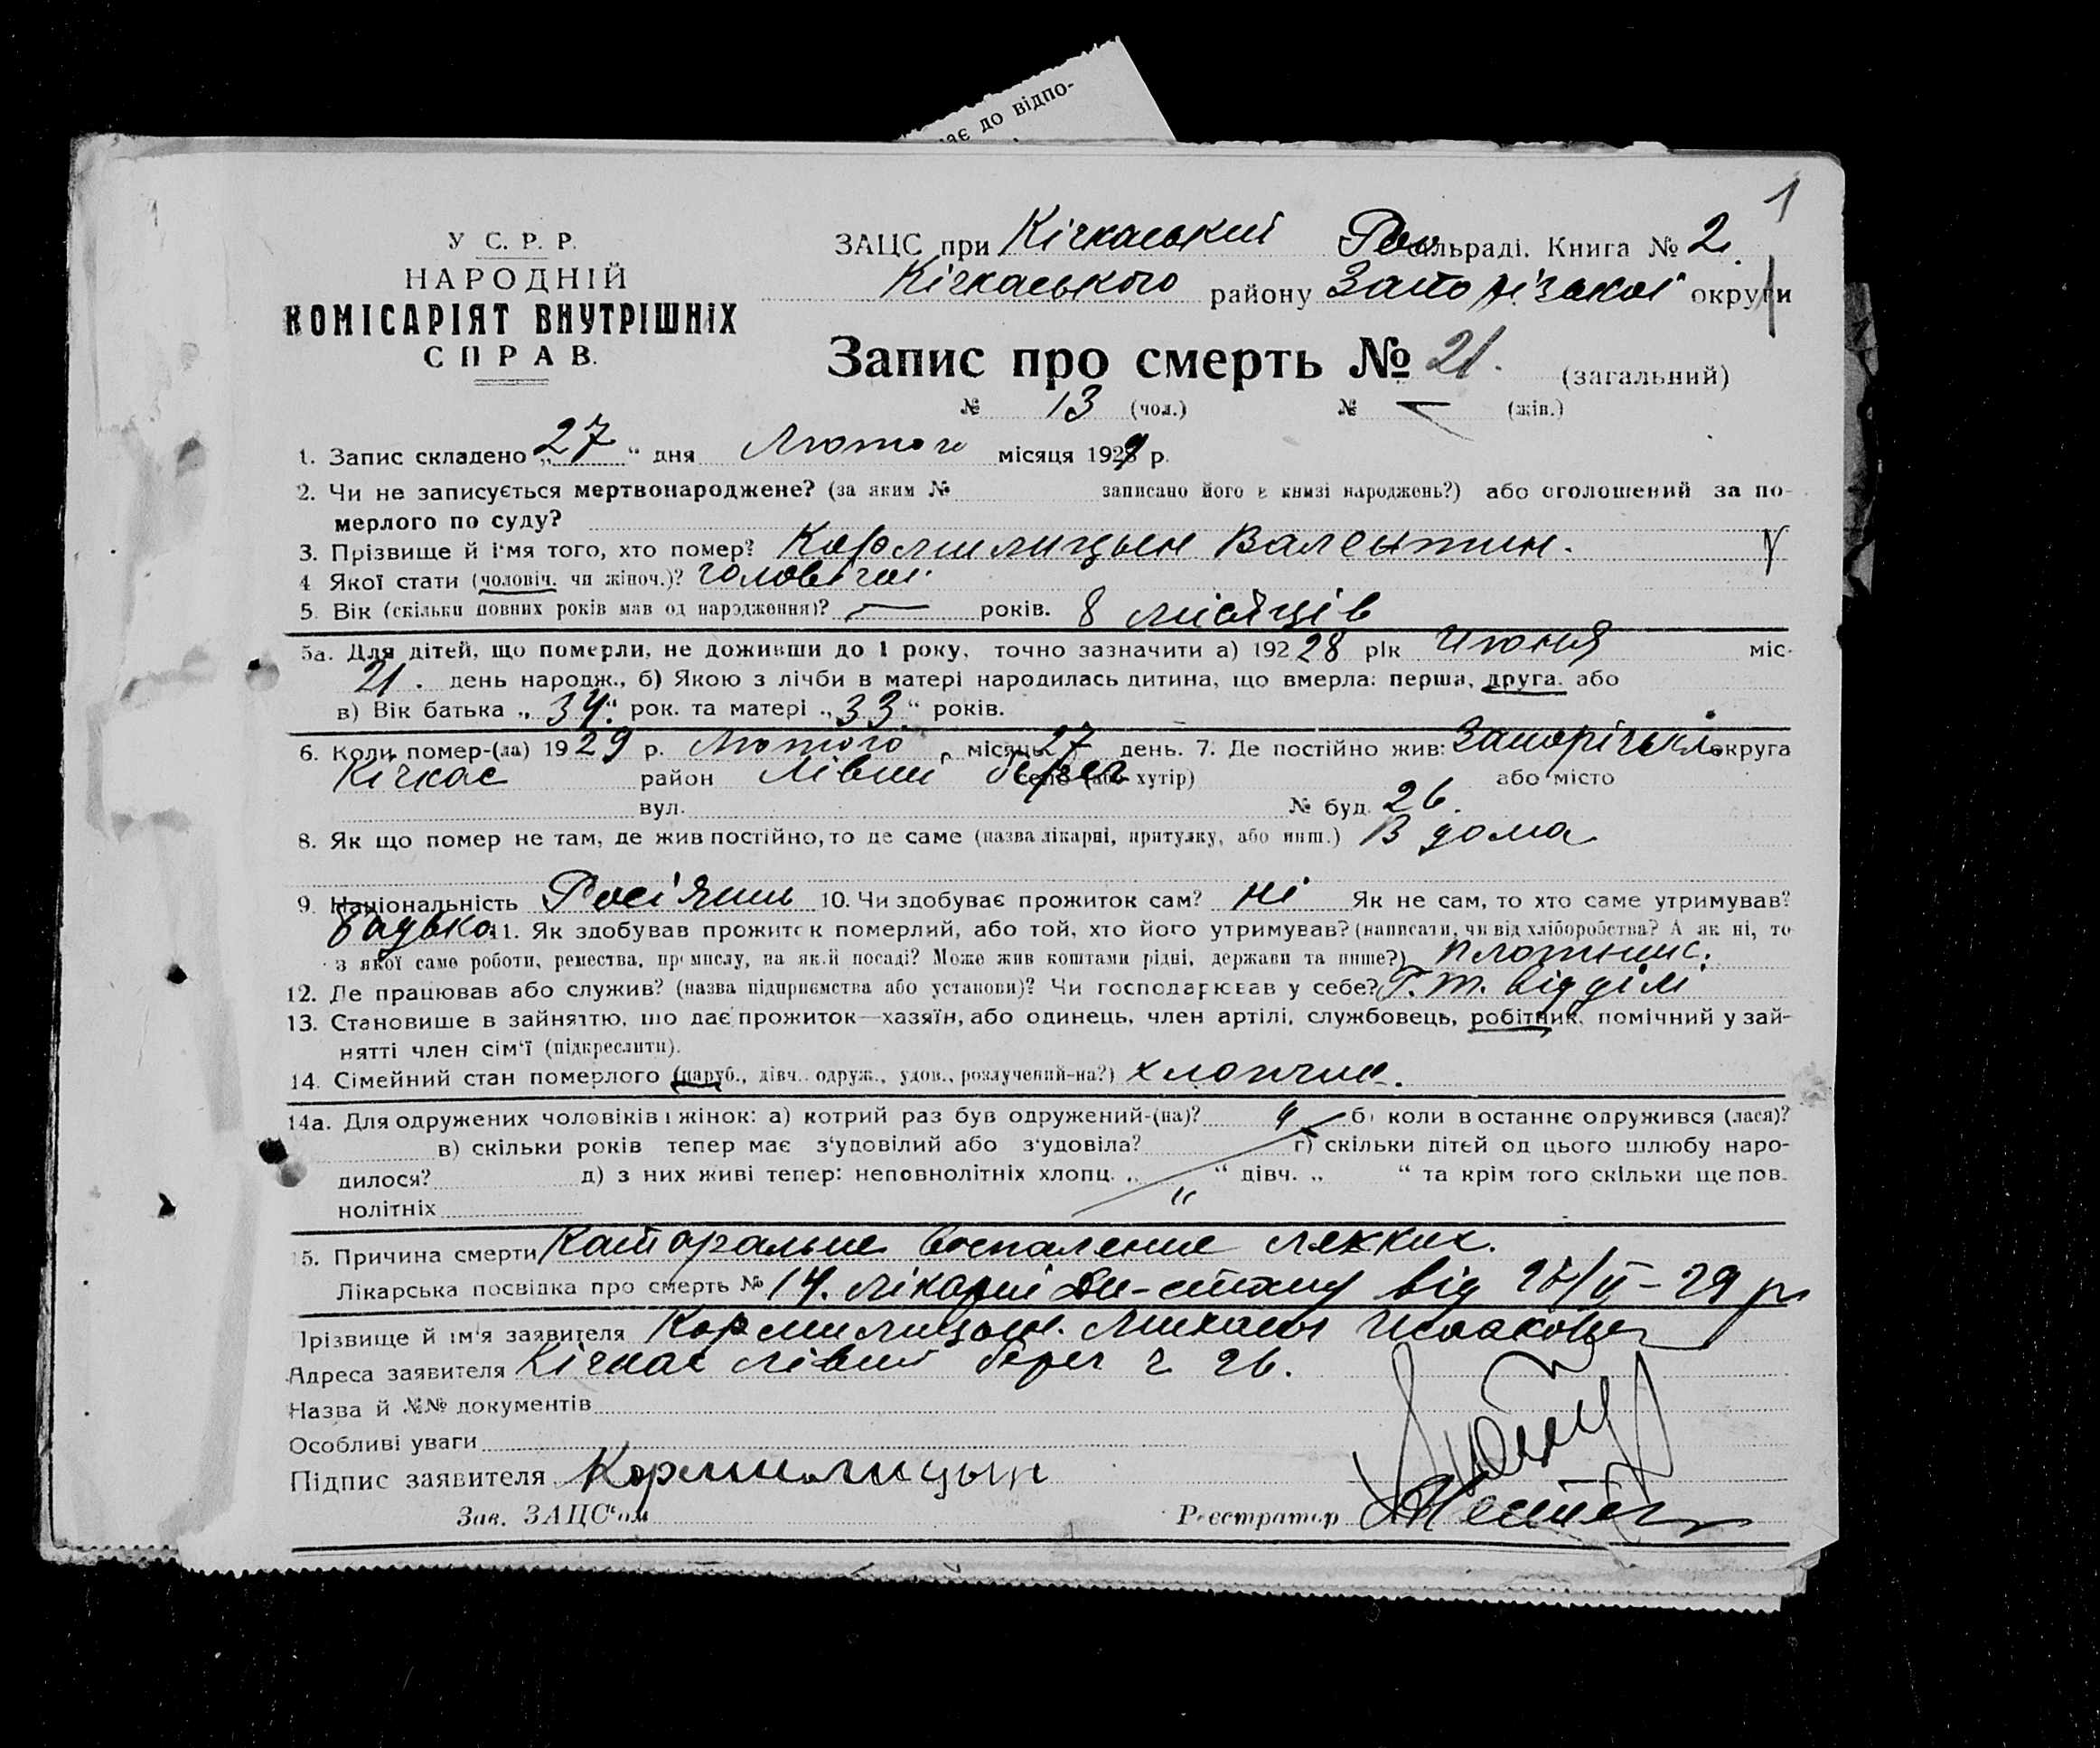 ає до відпо-
1
У С. Р. Р.
НАРОДНІЙ
КОМІСАРІЯТ ВНУТРІШНІХ
СПРАВ.
ЗАЦС при Кічкаський Рай сільраді. Книга № 2.
Кічкаського району Запорізької округи
Запис про смерть № 21. (загальний)
№ 13 (чол.) № — (жін.)
1. Запис складено „27“ дня Лютого місяця 1929 р.
2. Чи не записується мертвонароджене? (за яким № записано його в книзі народжень?) або оголошений за по-
мерлого по суду?
3. Прізвище й і'мя того, хто помер? Кормилицын Валентин.
4 Якої стати (чоловіч. чи жіноч.)? чоловічої.
5. Вік (скільки повних років мав од народження)? — років. 8 місяців
5а. Для дітей, що померли, не доживши до 1 року, точно зазначити а) 192 28 рік Июня міс.
21. день народж., б) Якою з лічби в матері народилась дитина, що вмерла: перша, друга. або
в) Вік батька „34“ рок. та матері „33“ років.
6. Коли помер-(ла) 1929 р. Лютого місяць 27 день. 7. Де постійно жив: Запорізька округа
Кічкас район Лівий берег село (або хутір) або місто
вул. № буд. 26.
8. Як що помер не там, де жив постійно, то де саме (назва лікарні, притулку, або инш.) В дома
9. Національність Росіянин 10. Чи здобуває прожиток сам? ні Як не сам, то хто саме утримував?
батько 11. Як здобував прожиток померлий, або той, хто його утримував? (написати, чи від хліборобства? А як ні, то
з якої саме роботи, ремества, промислу, на якій посаді? Може жив коштами рідні, держави та инше?) плотник.
12. Де працював або служив? (назва підприємства або установи)? Чи господарював у себе? Г. т. відділі
13. Становише в зайняттю, що дає прожиток—хазяїн, або одинець, член артілі, службовець, робітник, помічний у зай-
нятті член сім'ї (підкреслити).
14. Сімейний стан померлого (паруб., дівч. одруж., удов., розлучений-на?) хлопчик.
14а. Для одружених чоловіків і жінок: а) котрий раз був одружений-(на)? б) коли востаннє одружився (лася)?
в) скільки років тепер має з'удовілий або з'удовіла? г) скільки дітей од цього шлюбу наро-
дилося? д) з них живі тепер: неповнолітніх хлопц. „ “ дівч. „ “ та крім того скільки ще пов-
нолітніх
15. Причина смерти Катаральне воспаление легких.
Лікарська посвідка про смерть № 14. лікарні від 27/II–29 р.
Прізвище й ім'я заявителя Кормилицын.
Адреса заявителя Кічкас лівий берег 26.
Назва й №№ документів
Особливі уваги
Підпис заявителя Кормилицын
Зав. ЗАЦС'ом Реєстратор